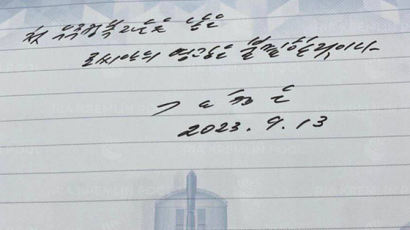 첫 우주정복자들을 낳은
로씨야의 영광은 불멸할것이다
김정은
2023. 9. 13